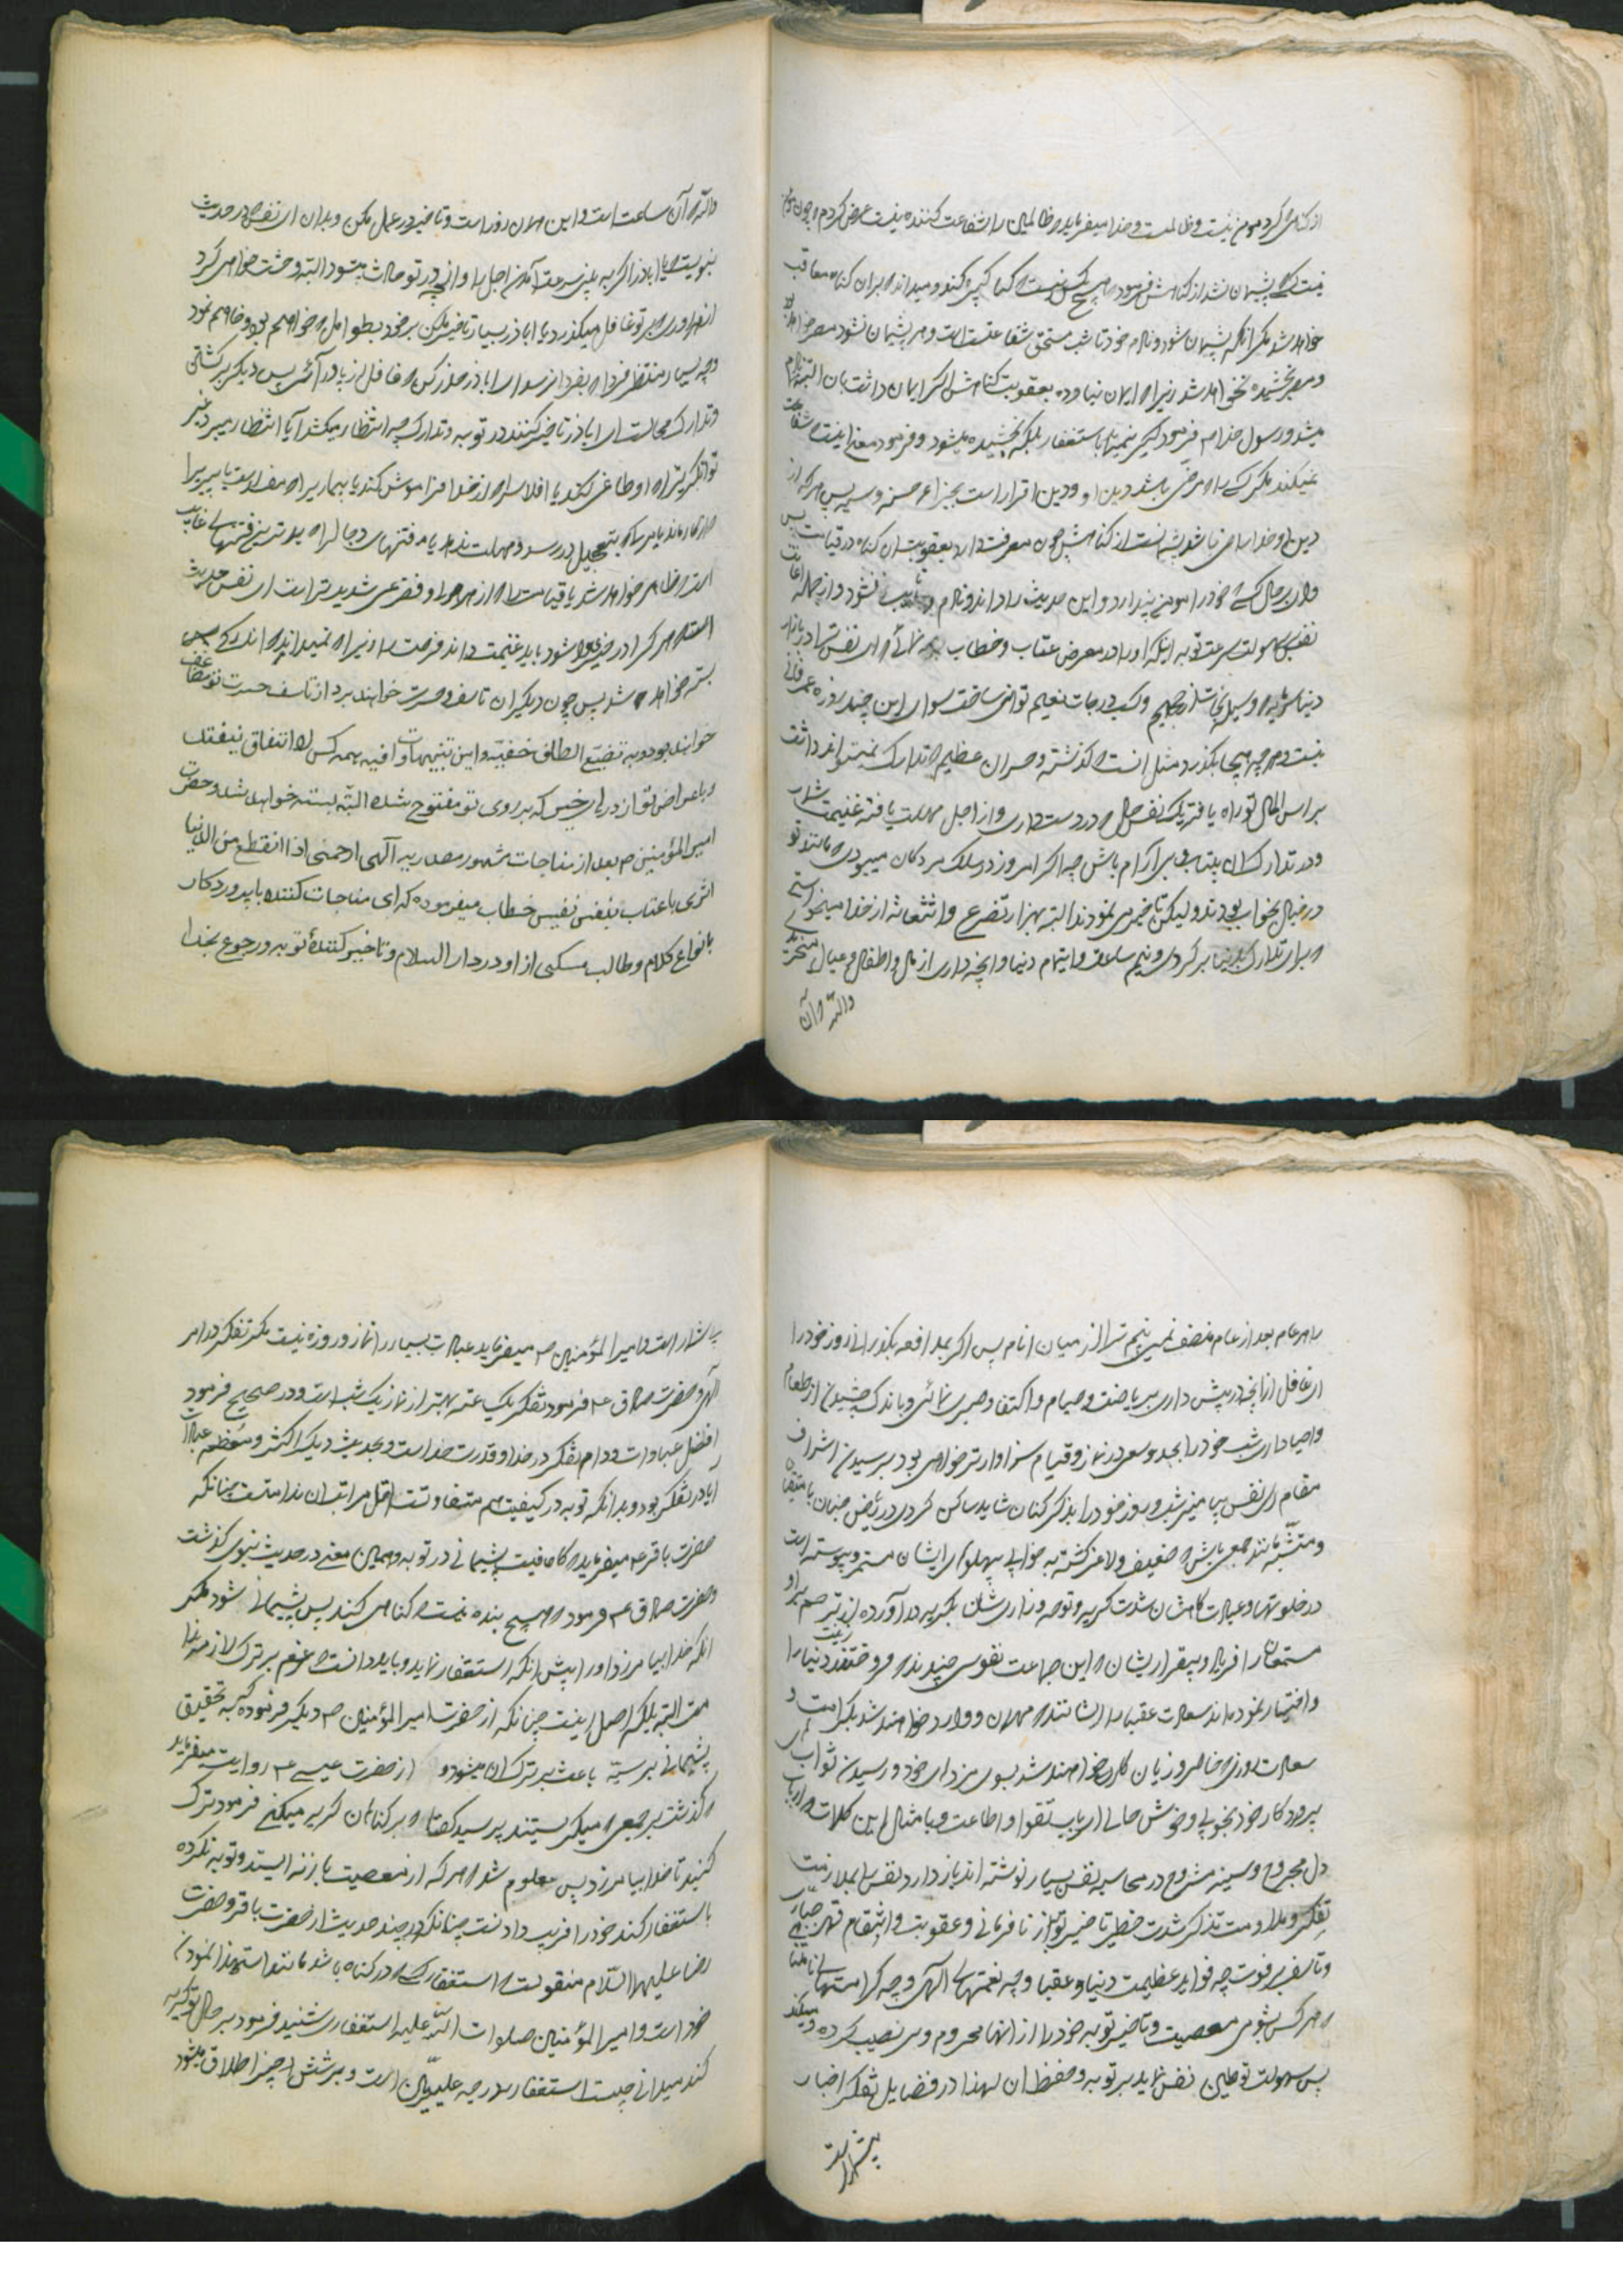 از گناهی که کرد مومن نیست و ظالمست و خدا میفرماید که ظالمین را شفاعت کننده نیست عرض کردم که چون مومن
نیست کسی که پشیمان نشد از گناهش فرمود که هیچ کس نیست که گناه کبیره کند و میداند که بران گناه معاقب
خواهد شد مگر آنکه پشیمان شود و نادم خود تایب مستحق شفاعتست و هر که پشیمان نشود مصر خواهد بود
و مصر بخشیده نخواهد شد زیرا که ایمان نیاورده بعقوبت گناهش اگر ایمان داشت بان البته نادم
میشد و رسول خدا ص فرمود کبیره نمیماند با استغفار بلکه بخشیده میشود و فرمود معنی اینست که شفاعت
نمیکند مگر کسی را که مرضی باشد دین او و دین اقرار است بجزا بر حسنه و سیئه پس هر که از
دین او خدا راضی باشد پشیمانست از گناهش چون معرفت دارد بعقوبت ان گناه در قیامت پس
وای بر حال کسی که خود را مومن پندارد و این حدیث را داند و نادم و تایب نشود و از جمله اعانت
نفس بسهولت سرعت توبه اینکه او را در معرض عتاب و خطاب نمائی که ای نفس تنها در بازار
دنیا سرمایه که وسیله نجات از جحیم و کسب درجات نعیم توانی ساخت سوای این چند روزه عمر فانی
نیست و هر چه بیجا بگذرد مثل انست که گذشته و خسران عظیم که تدارک نمیتواند داشت
بر راس المال تو راه یافته یک نفس حال که در دست داری و از اجل مهلت یافته غنیمت شمار
و در تدارک ان بیتاب و بی آرام باش چه اگر امروز در سلک مردگان میبودی که مانند تو
در خیال بخواب بودند و لیکن تاخیر می نمودند البته بهزار تضرع و استغاثه از خدا میخواستی
که برای تدارک بدنیا برگردی و نیم ساعت و ایتمام دنیا و انچه داری از مال و اطفال و عیال
والله که آن
والله که آن ساعت است و این همان روز است و تاخیر در عمل مکن و بدان ای نفس در حدیث
نبویست که یا اباذر اگر به بینی سرعت آمدن اجل را و انچه در تو حادث میشود البته وحشت خواهی کرد
از هر روزی که بر تو غافل میگذرد یا اباذر بسیار تاخیر مکن بر خود بطول امل که خواهم بود و خواهم نمود
و چه بسیار منتظر فردا که بفردا نرسد ای اباذر حذر کن که غافل از پا در آئی پس دیگر برگشتن
و تدارک محالست ای اباذر تاخیر کننده در توبه و تدارک چه انتظار میکشد آیا انتظار میبرد غیر
توانگریرا که او طاغی کند یا افلاسی که از خدا فراموش کند یا بیماریرا که مفسد است یا پیریرا
که از کار ماند یا مرگی که بتعجیل در رسد و مهلت ندهد یا فتنهای دجالرا که بدترین فتنهای غایب
است که ظاهر خواهد شد یا قیامت را که از هر هول و فزعی شدیدتر است ای نفس حدیث
است که هر که را در خیری گشوده شود باید غنیمت داند فرصت را زیرا که نمیداند که اندکی پس
بسته خواهد شد پس چون دیگران تاسف و حسرت خواهند برد از تاسف حسرت تو مضاعف
خواهد بود و به تضییع الطاف خفیّه و این تنبیهات وافیه بهمه کس لا اتفاق نیفتد
و باعراض تو از درهای خیر که بر روی تو مفتوح شده البتّه بسته خواهد شد و حضرت
امیر المؤمنین ص بعد از مناجات مشهور مصدر به آلهی ارحمنی اذا انقطع من الدنیا
اثری با عتاب بنفس نفیس خطاب میفرموده که ای مناجات کننده با پروردکار
بانواع کلام و طالب مسکنی از او در دار السلام و تاخیر کننده توبه و رجوع بخدا
را هر عام بعد از عام منصف نمی بینم ترا از میان انام پس اگر بمدافعه بگذرانی روز خود را
ای غافل از انچه در پیش داری بریاضت و صیام و اکتفا و صبر نمائی و باندک چشیدنی از طعام
و احیا داری شب خود را بجد و سعی در نماز و قیام سزاوارتر خواهی بود برسیدن اشراف
مقام ای نفس بیامیز شب و روز خود را بذکر کنان شاید ساکن گردی در ریاض جنان با متقیان
و متشبّه مانند جمعی باش که ضعیف و لاغر گشته به خوابی پهلوهای ایشان مستمر و پیوسته است
در خلوتها و عبادت گاهشان شدت گریه و نوحه و زاری شان بگریه در آورده
مستمعانرا فریاد و بیقراریشان که این جماعت نفوسی چندند که فروختند زینت دنیا را
و اختیار نموده اند سعادت عقبی را ایشانند که مهمان و وارد خواهند شد بکرامت و
سعادت روزی که خاسر و زیان کار خواهند شد بسوی مزدهای خود و رسیدن ثواب
پروردکار خود بخوبی و خوش حالی ارباب تقوا و اطاعت و بامثال این کلمات که ارباب
دل مجروح و سینه مشروح در محاسبه نفس بسیار نوشته اند باز دارد نفس را بملازمت
تفکر و مداومت تذکر شدت خطر تاخیر توبه از نافرمانی و عقوبت و انتقام قهر جبّار
و تاسف بر فوت چه فواید عظیمت دنیا و عقبا و چه نعمتهای آلهی و چه کرامتهای نامتناهی
که هر کس بشومی معصیت و تاخیر توبه خود را از انها محروم و بی نصیب کرده و میکند
پس سهولت توطین نفس نماید بر توبه و حفظ ان لهذا در فضایل تفکر اخبار
بیشمار است
بیشمار است و امیر المؤمنین ص میفرماید عبادت بسیاری نماز و روزه نیست مگر تفکر در امر
آلهی و حضرت صادق ع فرمود تفکر یک ساعته بهتر از نماز یک شب است و در صحیح فرمود
افضل عبادات دوام تفکر در خدا و قدرت خداست و بحدیث دیگر اکثر و معظم عبادات
اباذر تفکر بود و بدانکه توبه در کیفیت هم متفاوتست اقل مراتب ان ندامتست چنانکه
حضرت باقر ع میفرماید که کافیست پشیمانی در توبه و همین معنی در حدیث نبوی گذشت
و حضرت صادق ع فرمود که هیچ بنده نیست که گناهی کند پس پشیمان شود مگر
انکه خدا بیامرزد او را پیش از انکه استغفار نماید و باید دانست که عزم بر ترک لازمه ندا
مت البته بلکه اصل اینست چنانکه از حضرت امیر المؤمنین ص دیگر فرموده که به تحقیق
پشیمانی بر سیئه باعث بر ترک ان میشود و از حضرت عیسی ع روایت میفرماید
که گذشت بر جمعی که میگریستند پرسید گفتند که بر گناهان گریه میکنیم فرمود ترک
کنید تا خدا بیامرزد پس معلوم شد هر که از معصیت باز نه ایستد و توبه نکرده
استغفار کند خود را فریب داد نست چنانکه در چند حدیث از حضرت باقر و حضرت
رضا علیهما السّلام منقولست که استغفار کسی که در گناه باشد مانند استهزا نمودن
خود است و امیر المؤمنین صلوات الله علیه استغفاری شنید فرمود بر حال تو گریه
کند میدانی چیست استغفار درجه علییّین است و بر شش چیز اطلاق میشود